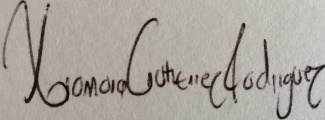 Xiomara Gutierrez Rodriguez